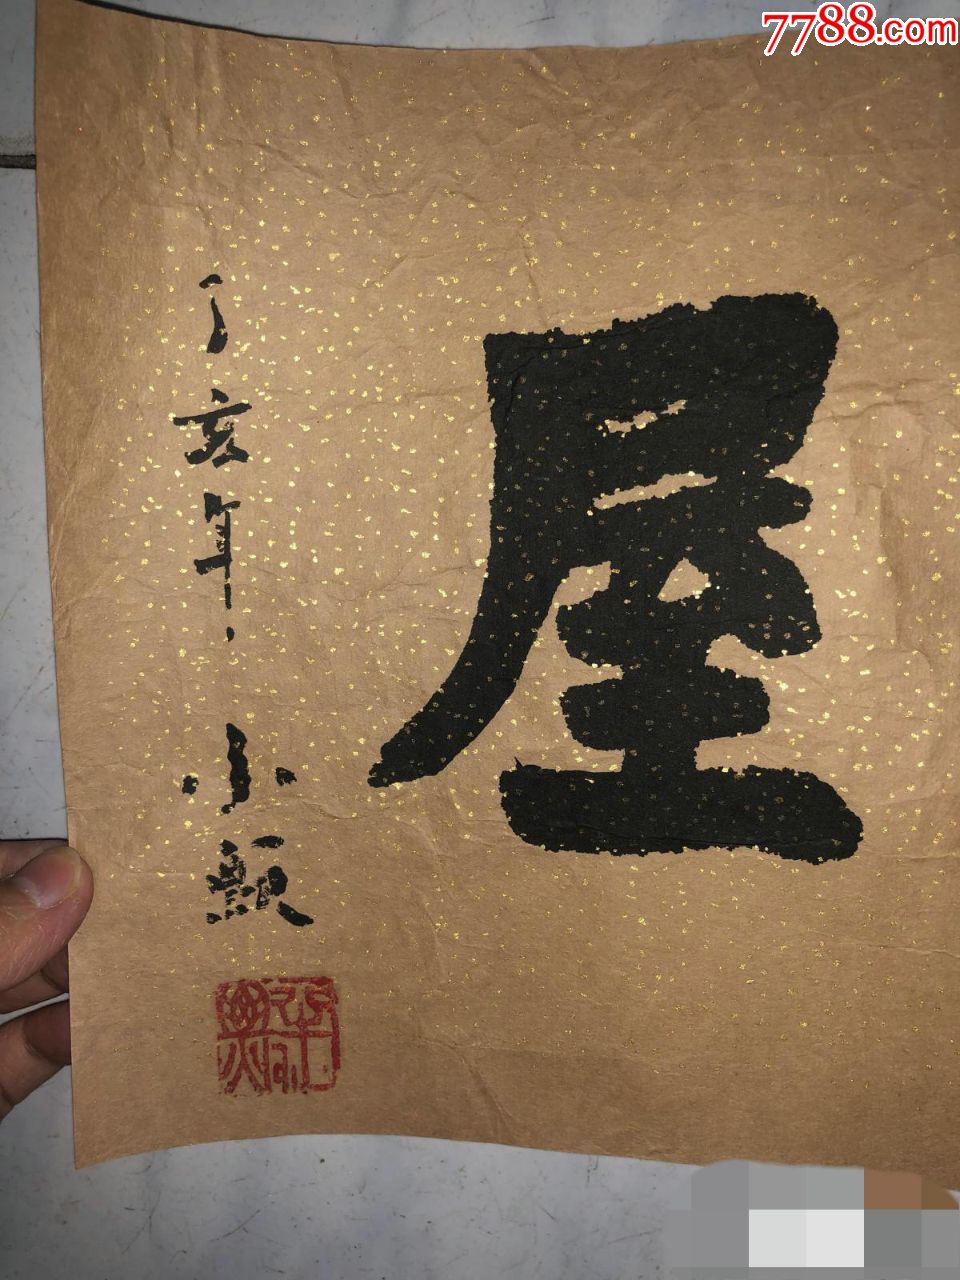 7788.com
屋
丁亥年
小